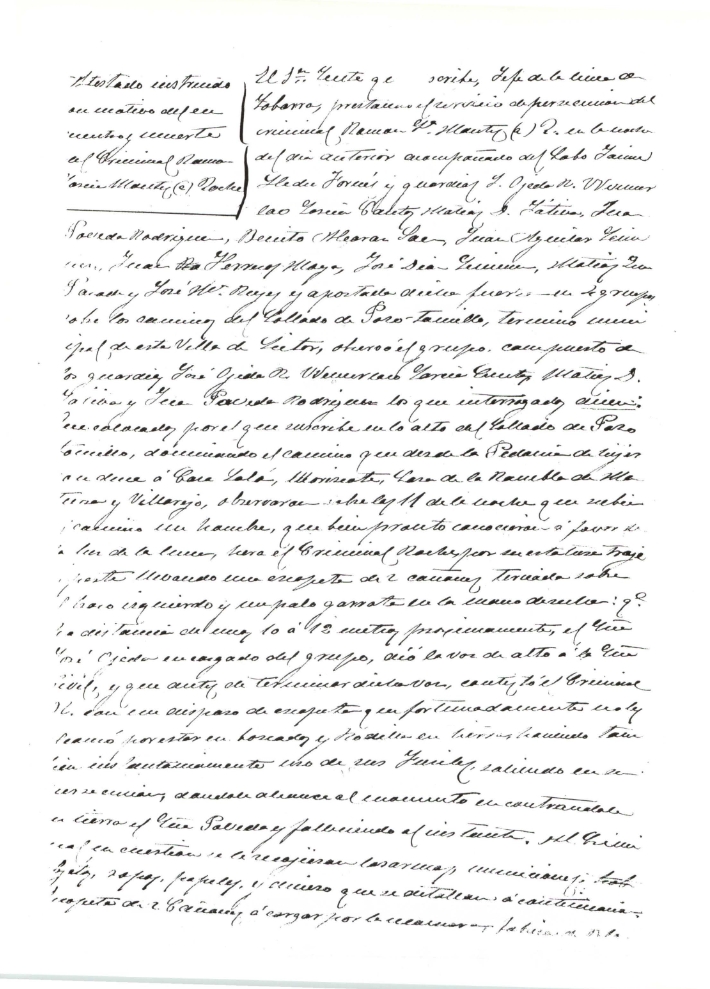 Atestado instruido
con motivo del en
cuentro y muerte
del Criminal Ramon
Garcia Montes (a) Roche
El Sr. Tente q e scribe, Jefe de la linea de
Tobarra, prestando el servicio de persecucion del
criminal Ramon Ga. Montes (a) R. en la noche
del dia anterior acompañado del Cabo Jaime
Lledu Fornés y guardias J. Ojeda R. Wences
lao Garcia Cantos Matias D. Játiva, Juan
Poveda Rodriguez, Benito Alcaraz Saez, Juan Aguilar
Juan Hernes Maya, José Dia Jimenez, Matias
Parada y José Ma. Reyes y apostada dicha fuerza en 4 grupos
sobre los caminos del Collado de Pozo-Tomillo, termino muni
cipal de esta Villa de Lietor, observó el grupo compuesto de
los guardias José Ojeda R. Wenceslao Garcia Cantos Matias D.
Jativa y Juan Poveda Rodriguez los que interrogados dicen:
Que colocados por el que suscribe en lo alto del Collado de Pozo
Tomillo, dominando el camino que desde la Pedania de Hijar
conduce á Casa Lalá, Casa de la Rambla de
y Villarejo, observaron sobre las 11 de la noche que subia
camino un hombre, que bien pronto conocieron á favor de
la luz de la luna, hera el Criminal Roche, por su estatura traje
y porte llevando una escopeta de 2 cañones terciada sobre
el brazo izquierdo y un palo garrote en la mano derecha: qe.
á la distancia de unos 10 á 12 metros proximamente, el Gua
José Ojeda encargado del grupo, dió la voz de alto á la Gua
Civil, y que antes de terminar dicha voz, contestó el Criminal
R. con un disparo de escopeta que afortunadamente no les
alcanzó por estar emboscados y rodilla en tierra haciendo tam
bien instantaneamente uso de sus fusiles, saliendo en su
persecucion, dandole alcance al momento encontrandole
en tierra el Gua Poveda y falleciendo al instante. Al Crimi
nal en cuestion se le recojieron las armas, municiones,
ropas, papeles, y dinero que se detallan á continuacion.
Escopeta de 2 Cañones á cargar por la recamara, fabrica de